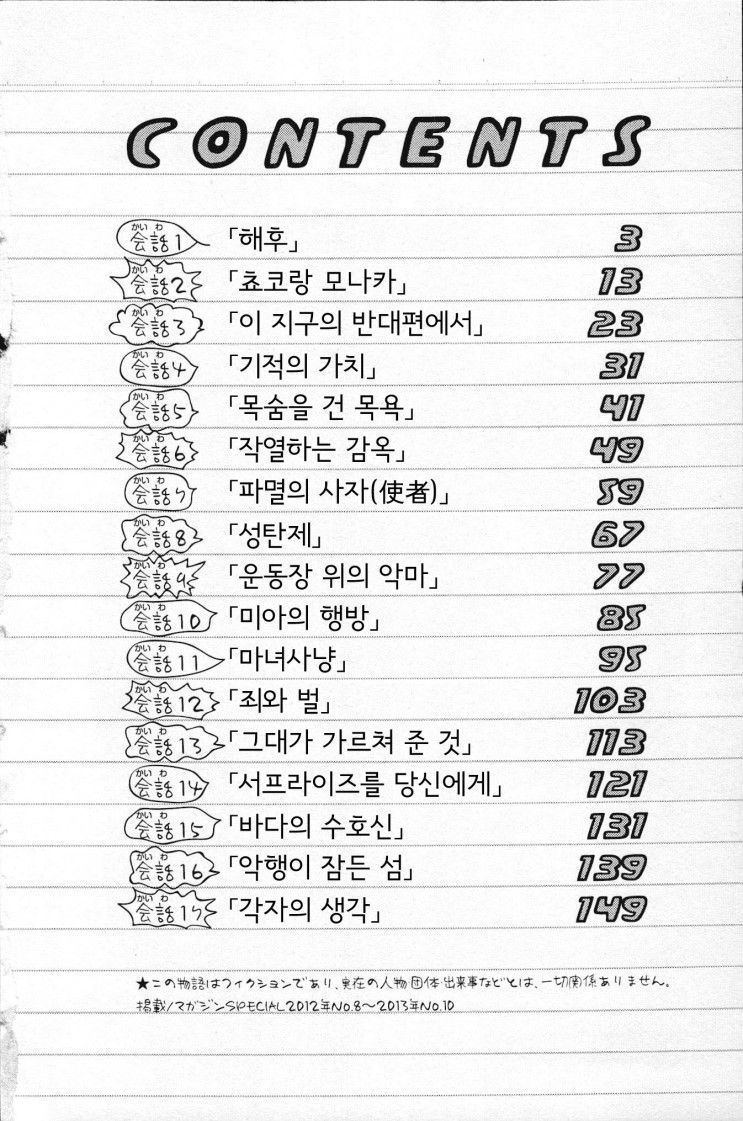 CONTENTS
会話1 「해후」 3
会話2 「쵸코랑 모나카」 13
会話3 「이 지구의 반대편에서」 23
会話4 「기적의 가치」 31
会話5 「목숨을 건 목욕」 41
会話6 「작열하는 감옥」 49
会話7 「파멸의 사자(使者)」 59
会話8 「성탄제」 67
会話9 「운동장 위의 악마」 77
会話10 「미아의 행방」 85
会話11 「마녀사냥」 95
会話12 「죄와 벌」 103
会話13 「그대가 가르쳐 준 것」 113
会話14 「서프라이즈를 당신에게」 121
会話15 「바다의 수호신」 131
会話16 「악행이 잠든 섬」 139
会話17 「각자의 생각」 149
★この物語はフィクションであり、実在の人物・団体・出来事などとは、一切関係ありません。
掲載/マガジンSPECIAL2012年No.8〜2013年No.10